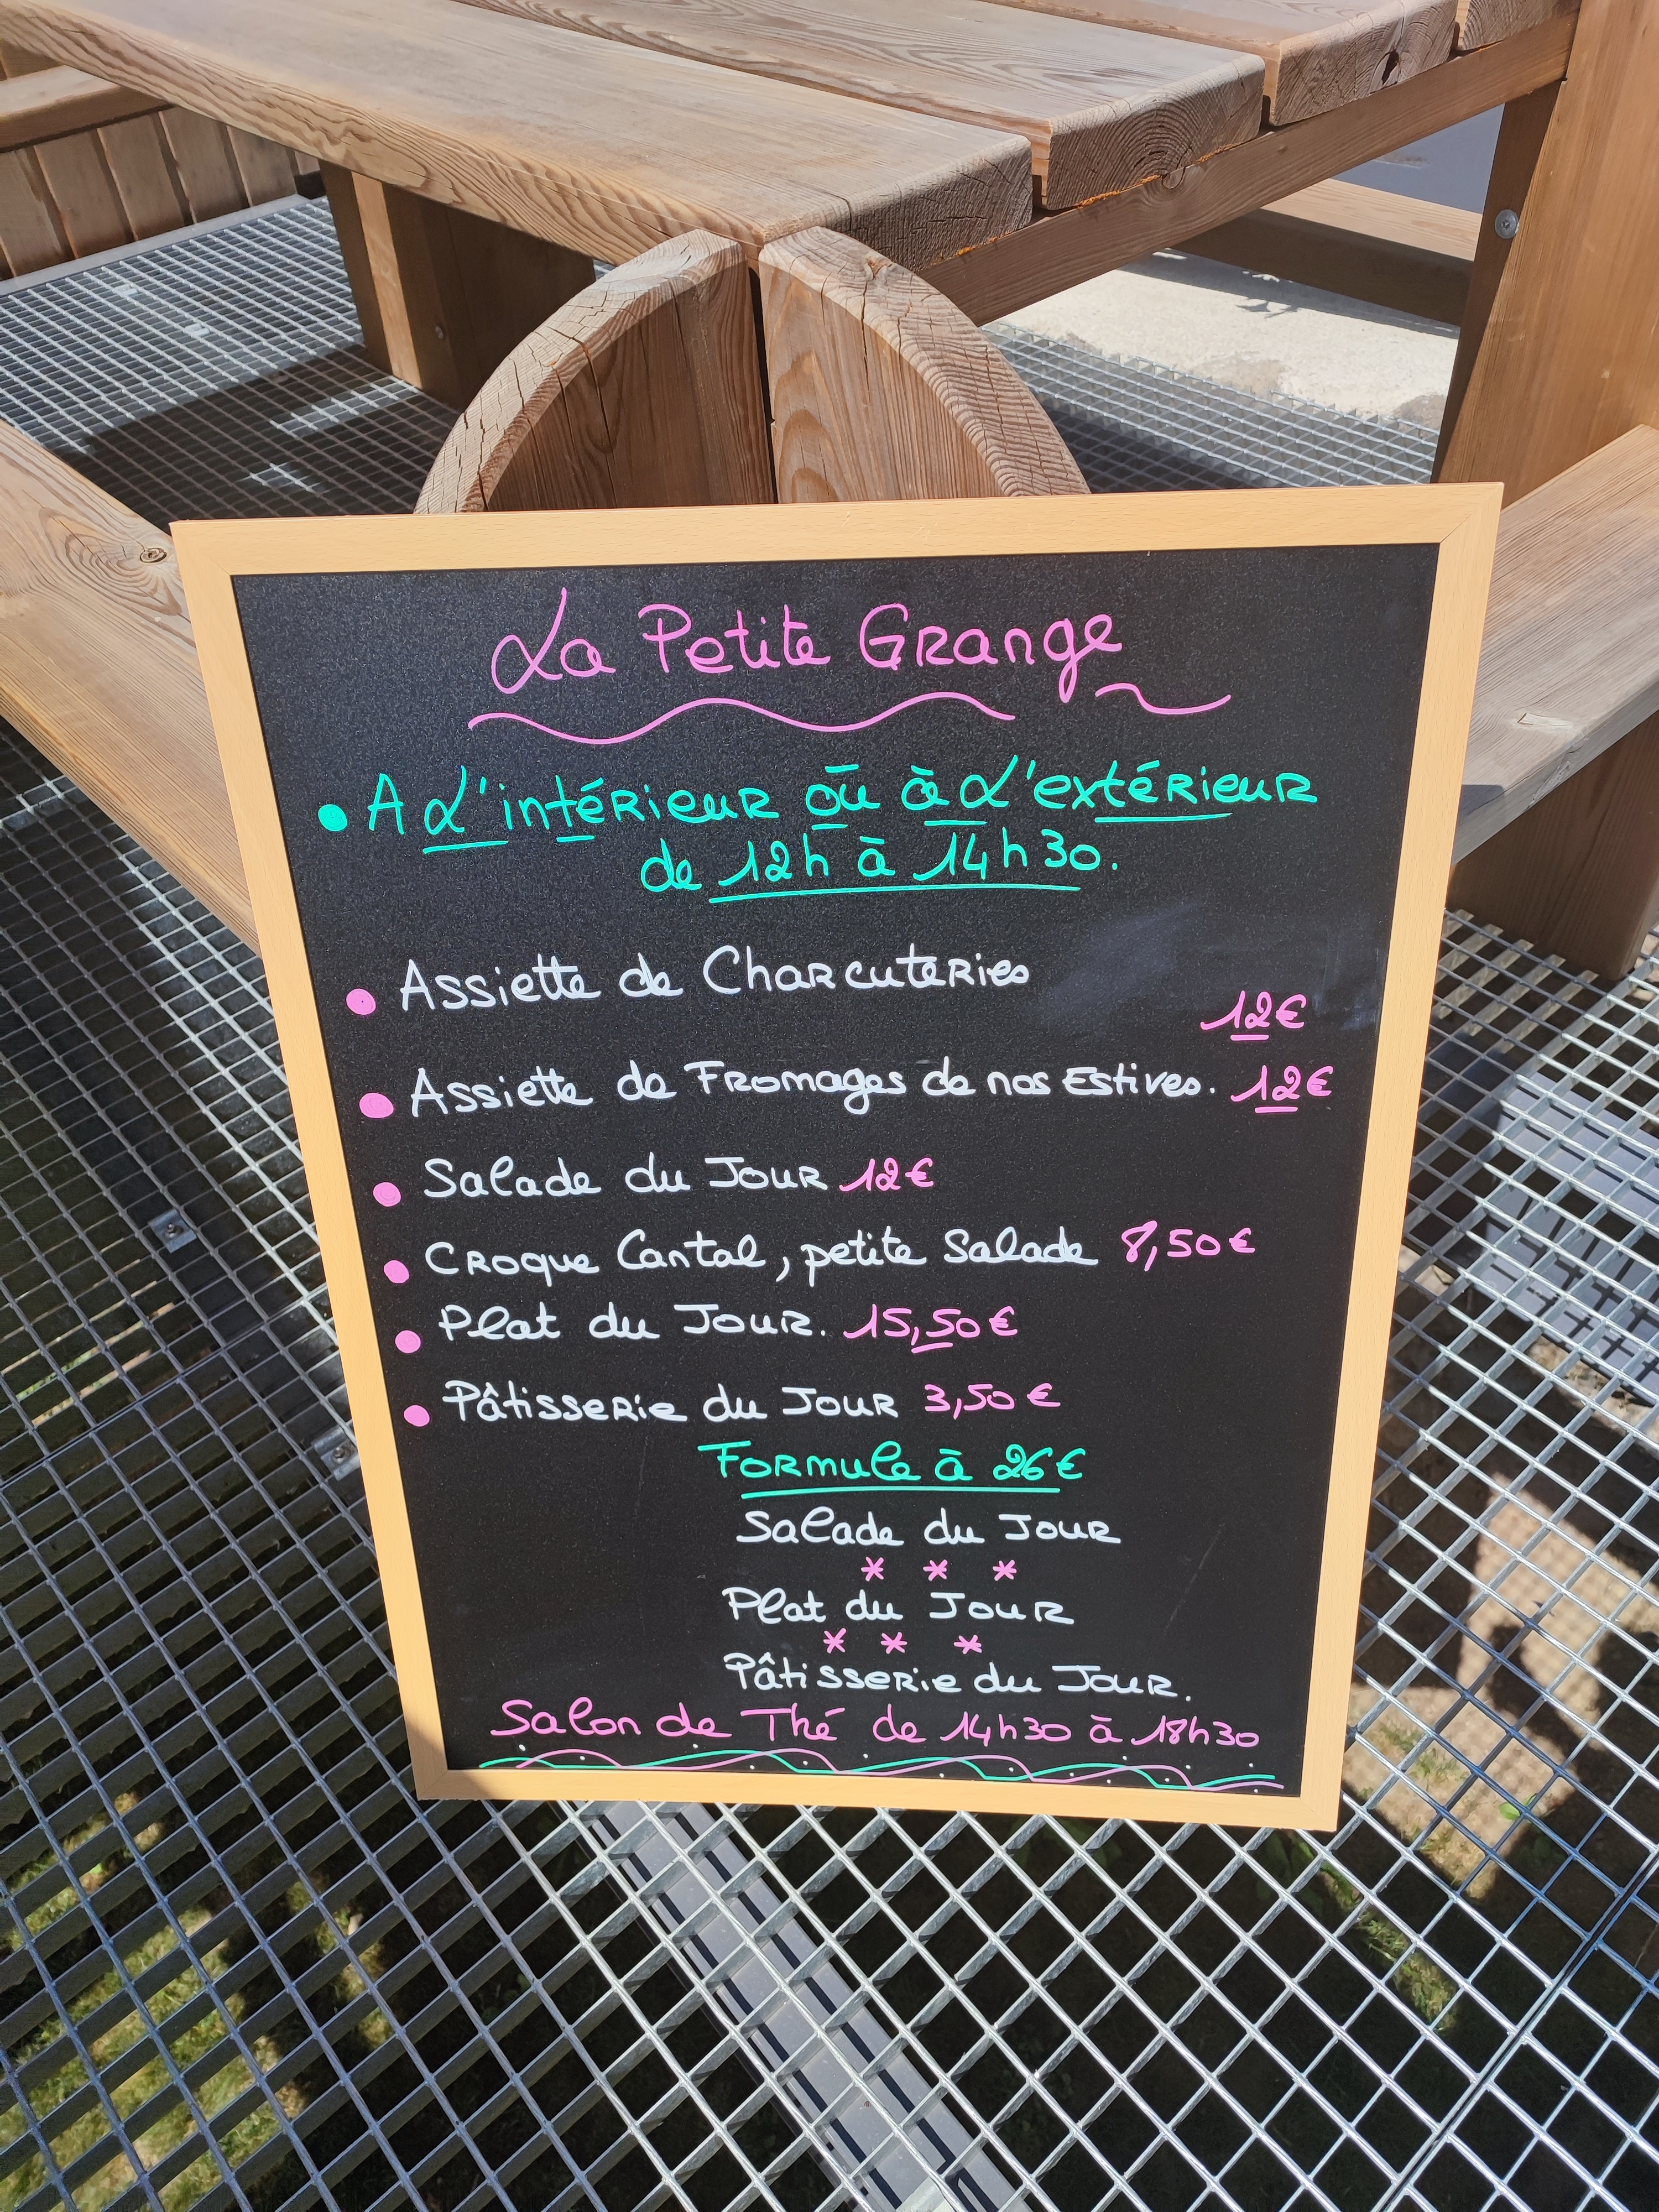 La Petite Grange
A L'intérieur où à L'extérieur
de 12h à 14h30.
Assiette de Charcuteries
12€
Assiette de Fromages de nos Estives. 12€
Salade du Jour 12€
Croque Cantal, petite Salade 8,50€
Plat du Jour. 15,50€
Pâtisserie du Jour 3,50€
Formule à 26€
Salade du Jour
* * *
Plat du Jour
* * *
Pâtisserie du Jour.
Salon de Thé de 14h30 à 18h30